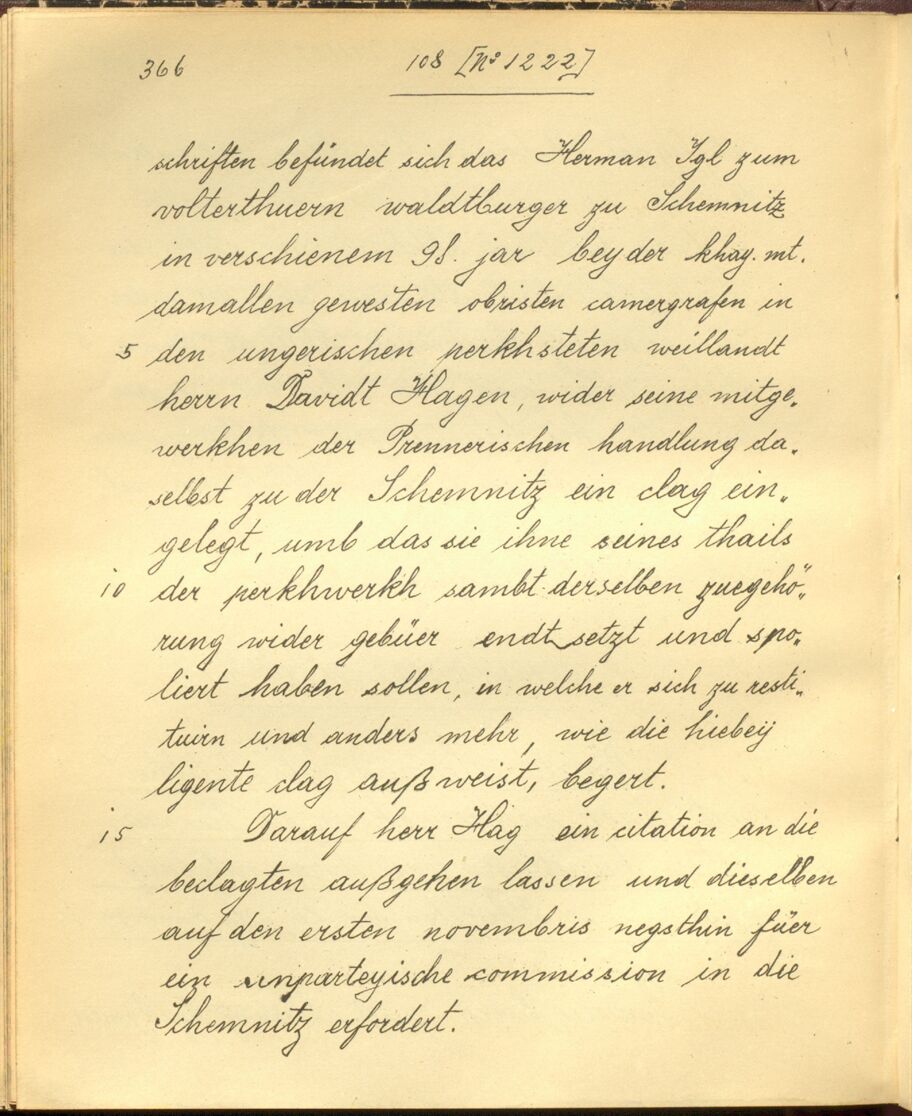 366 108 [Nº 1222]
schriften befündet sich das Herman Igl zum
volterthuern waldtburger zu Schemnitz
in verschienem 98. jar bey der khay. mt.
damallen gewesten obristen camergrafen in
5 den ungerischen perkhsteten weillandt
herrn Davidt Hagen, wider seine mitge„
werkhen der Prennerischen handlung da„
selbst zu der Schemnitz ein clag ein„
gelegt, umb das sie ihne seines thails
10 der perkhwerkh sambt derselben zuegehö„
rung wider gebüer endtsetzt und spo„
liert haben sollen, in welche er sich zu resti„
tuirn und anders mehr, wie die hiebey
ligente clag außweist, begert.
15 Darauf herr Hag ein citation an die
beclagten außgehen lassen und dieselben
auf den ersten novembris negsthin füer
ein unparteyische commission in die
Schemnitz erfordert.